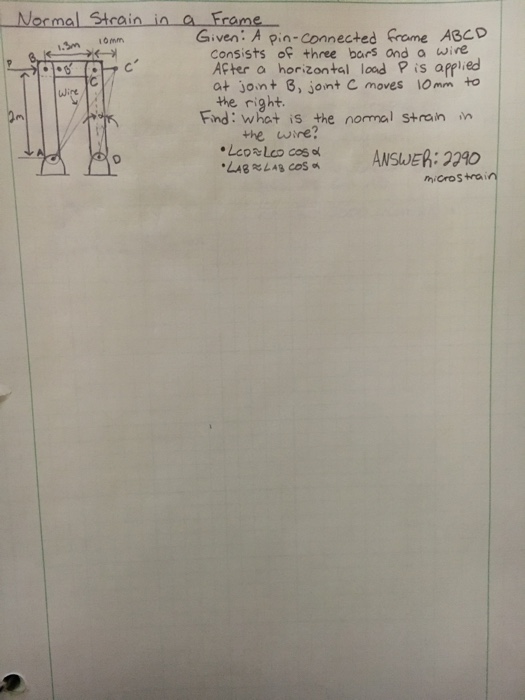 Normal Strain in a Frame
Given: A pin-connected frame ABCD
consists of three bars and a wire
After a horizontal load P is applied
at joint B, joint C moves 10mm to
the right.
Find: What is the normal strain in
the wire?
• LCD ≈ LCD cos α
• LAB ≈ LAB cos α
ANSWER: 2290
microstrain
1.5m
10mm
P
B
B'
C
C'
Wire
2m
A
D